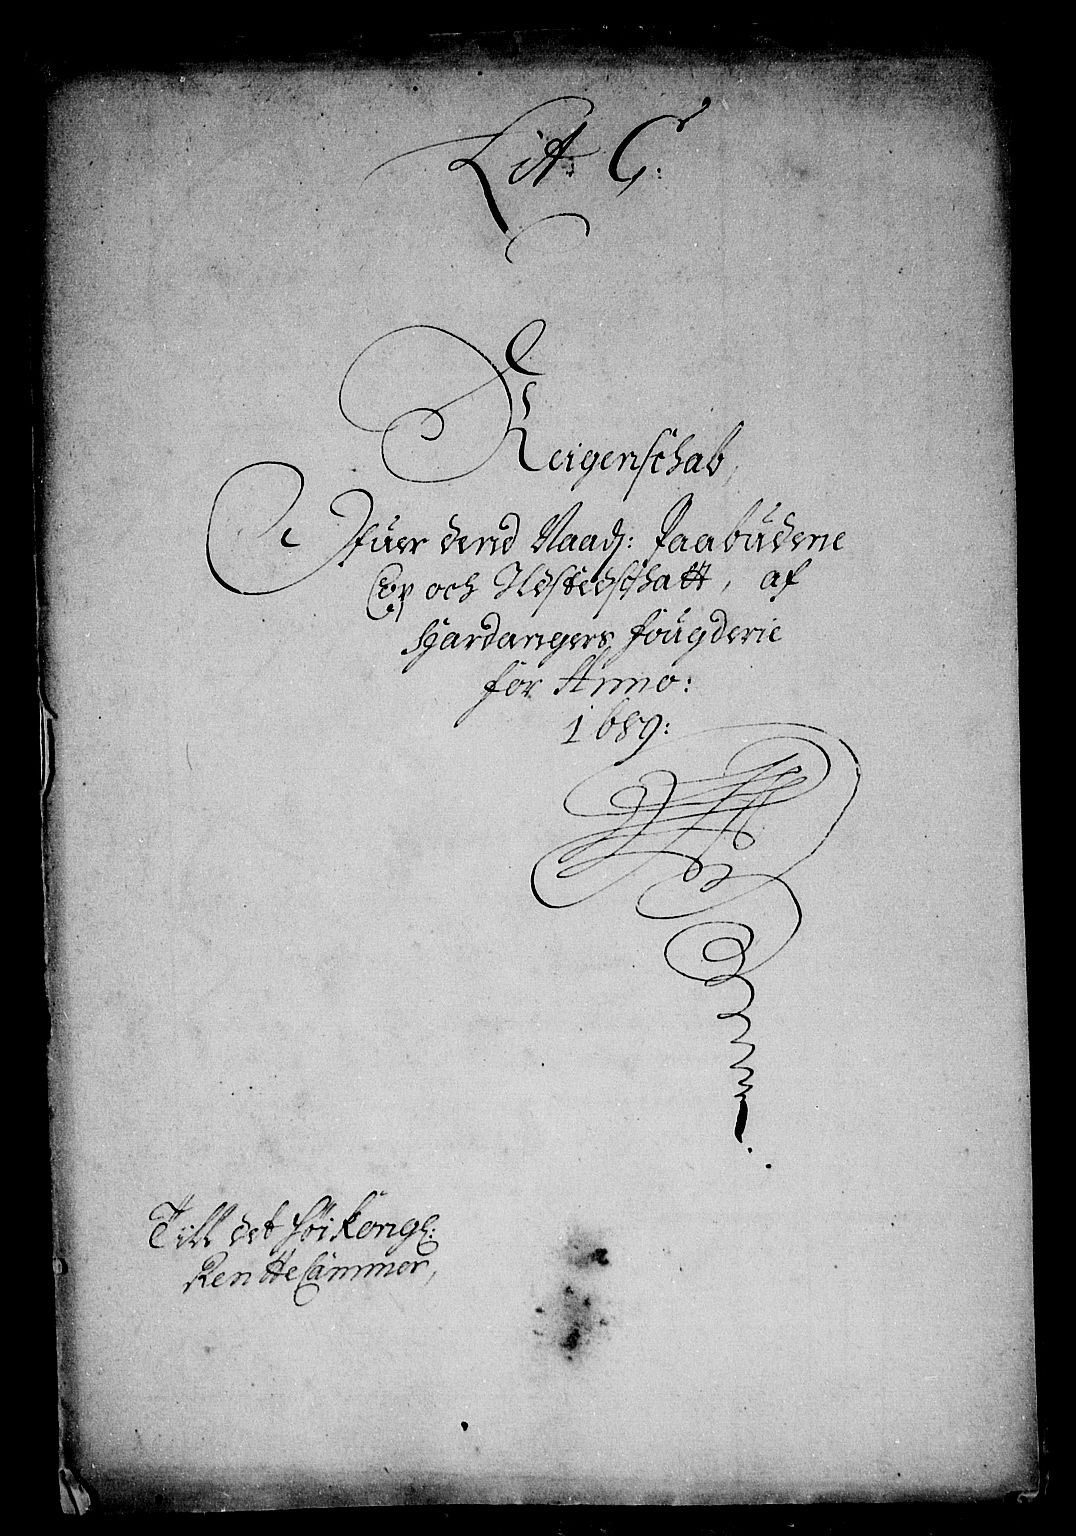 Lit: C:
Reigenschab,
Ofuer dend Naad: Paabudene
Cop och Ildstedschatt, af
Hardangers fougderie
for Anno:
1689:
Till det höi Kongl:
RentteCammer,